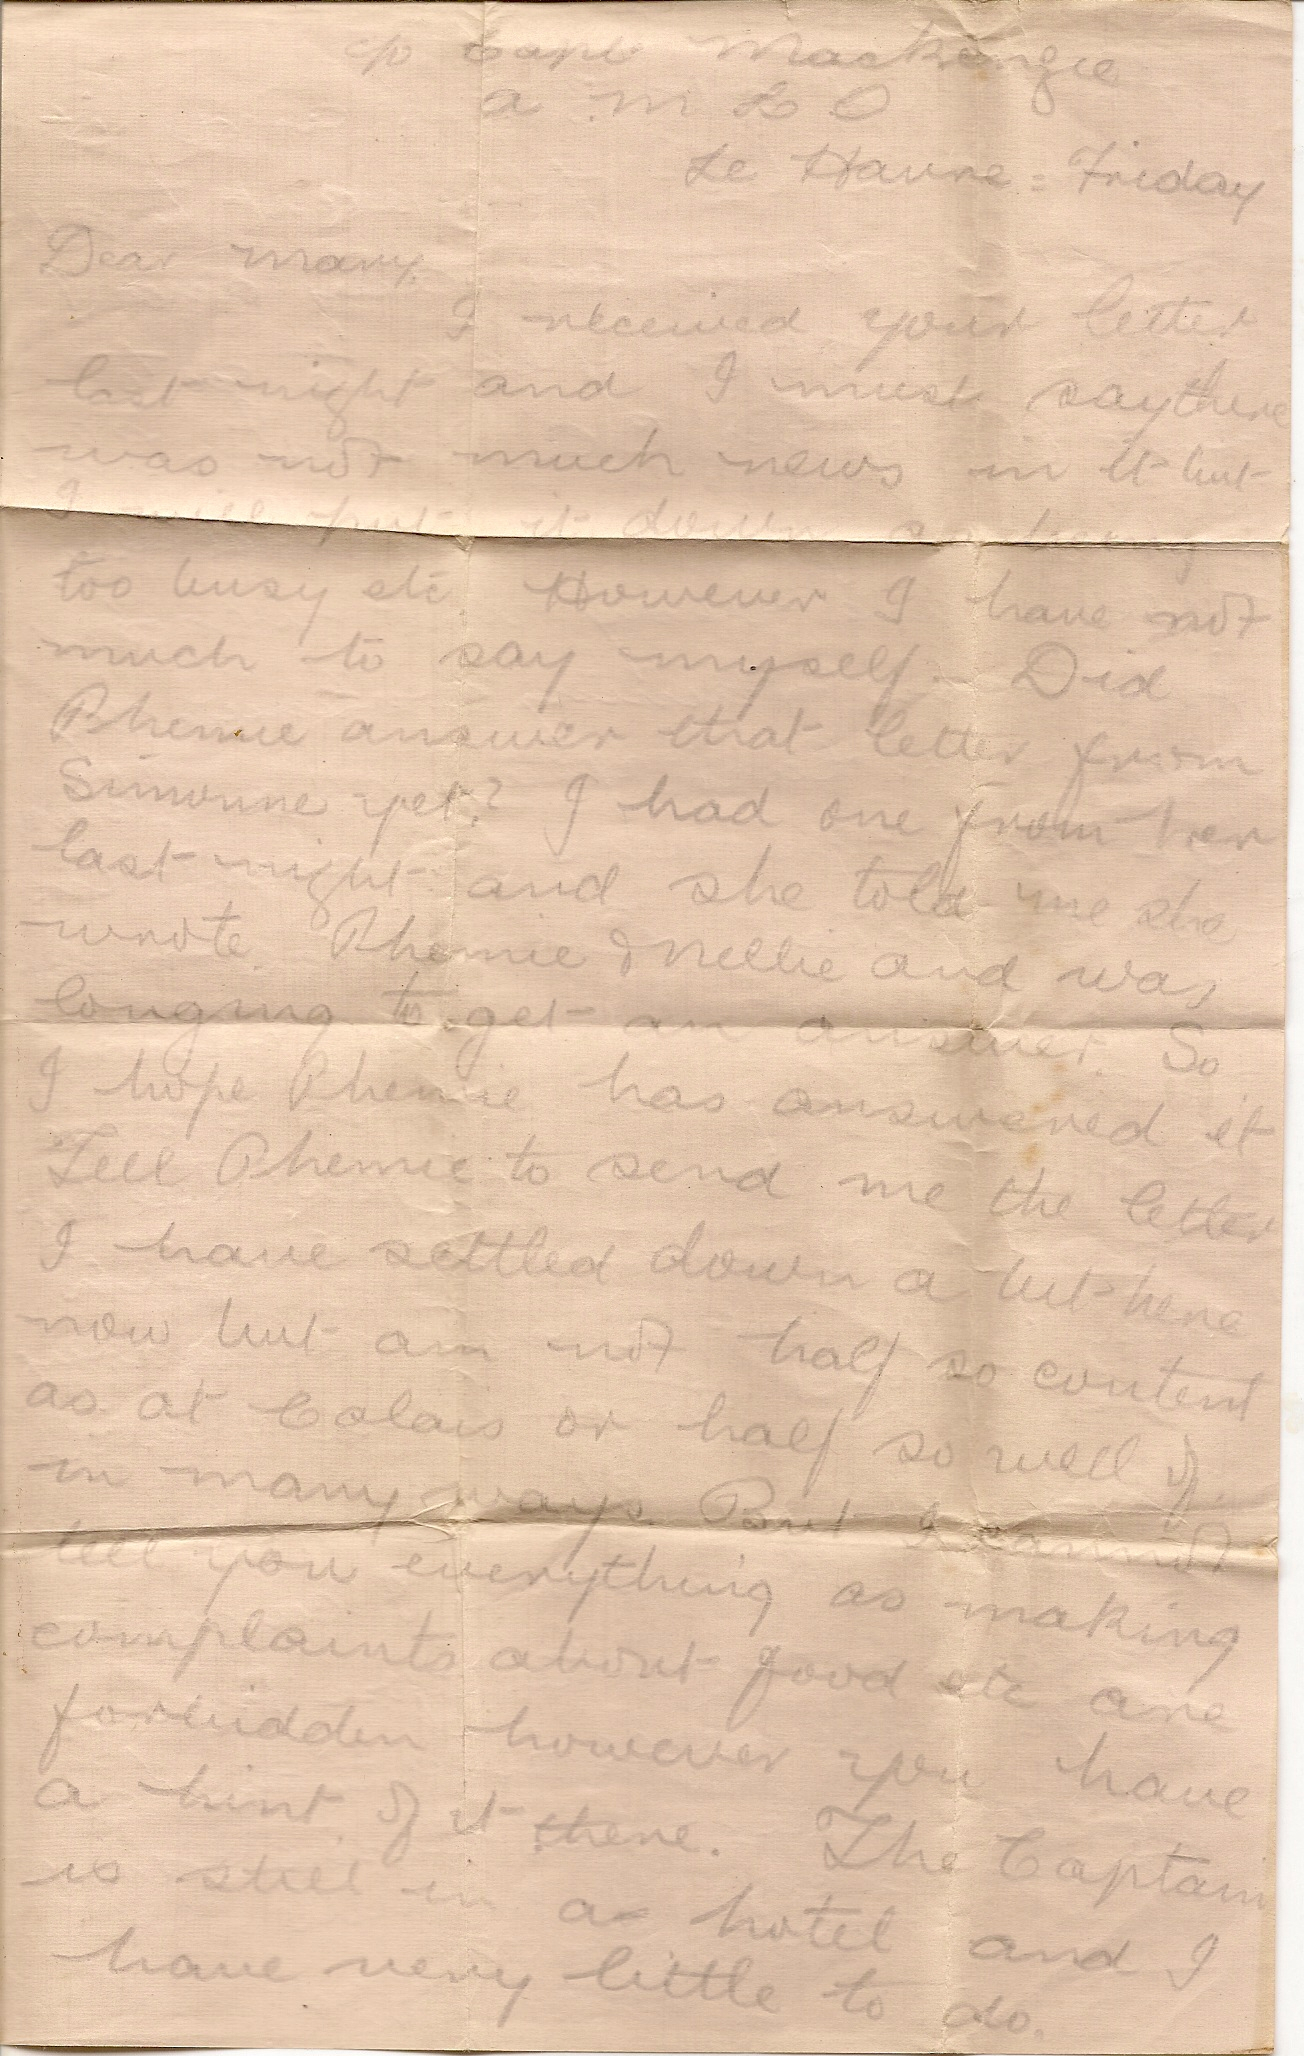 c/o Capt Mackenzie
A M L O
Le Havre = Friday
Dear Mary.
I received your letter
last night and I must say there
was not much news in it but
I will put it down as being
too busy etc. However I have not
much to say myself. Did
Phemie answer that letter from
Simonne yet? I had one from her
last night and she told me she
wrote Phemie & Nellie and was
longing to get an answer. So
I hope Phemie has answered it
Tell Phemie to send me the letter
I have settled down a bit here
now but am not half so content
as at Calais or half so well of
in many ways. But I cannot
tell you everything as making
complaints about food etc are
forbidden however you have
a hint of it there. The Captain
is still in a hotel and I
have very little to do.